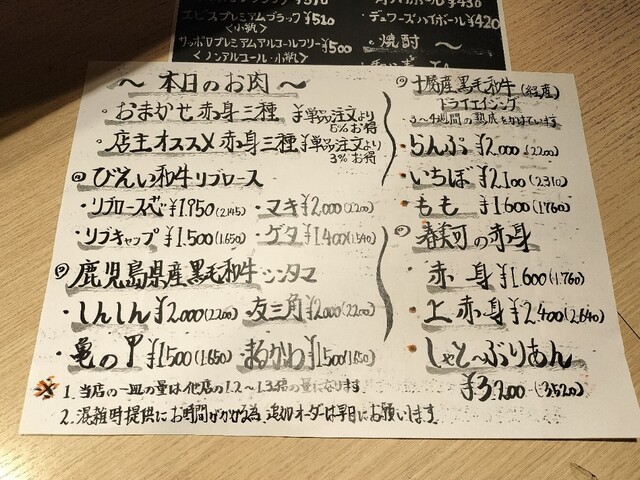 エビスプレミアムブラック ¥510
<小瓶>
サッポロプレミアムアルコールフリー ¥500
<ノンアルコール・小瓶>
デュワーズハイボール ¥420
焼酎 〜
〜 本日のお肉 〜
・おまかせ赤身三種 ¥単品注文より 5%お得
・店主オススメ赤身三種 ¥単品注文より 3%お得
びえい和牛リブロース
・リブロース芯 ¥1,950(2,145) ・マキ ¥2,000(2,200)
・リブキャップ ¥1,500(1,650) ・ゲタ ¥1,400(1,540)
鹿児島県産黒毛和牛シンタマ
・しんしん ¥2,000(2,200) ・友三角 ¥2,000(2,200)
・亀の甲 ¥1,500(1,650) ・まるかわ ¥1,500(1,650)
十勝産黒毛和牛(経産)
ドライエイジング
・3〜4週間の熟成をかけています
・らんぷ ¥2,000(2,200)
・いちぼ ¥2,100(2,310)
・もも ¥1,600(1,760)
の赤身
・赤身 ¥1,600(1,760)
・上赤身 ¥2,400(2,640)
・しゃとーぶりあん
¥3,200(3,520)
※ 1. 当店の一皿の量は他店の1.2〜1.3倍の量になります
2. 混雑時提供にお時間がかかる為、追加オーダーは早目にお願いします